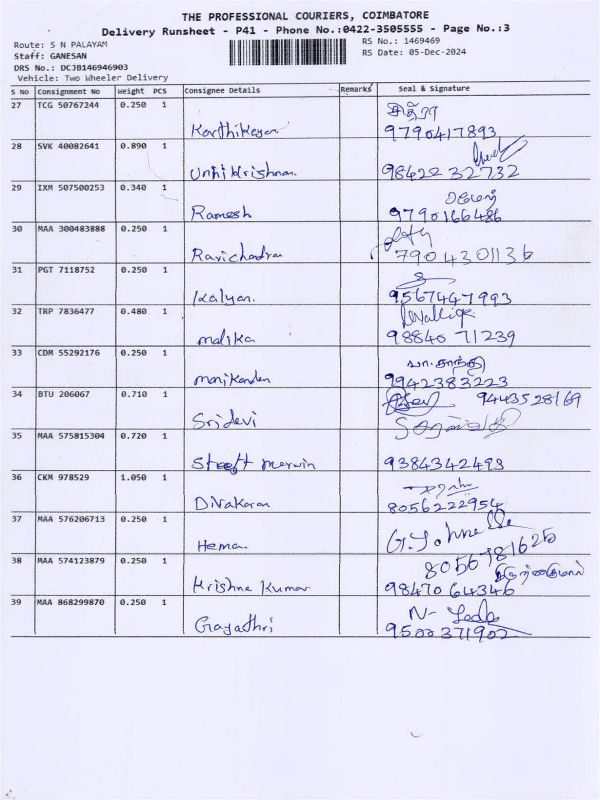 THE PROFESSIONAL COURIERS, COIMBATORE
Delivery Runsheet - P41 - Phone No.:0422-3505555 - Page No.:3
Route: S N PALAYAM
Staff: GANESAN
DRS No.: DCJB146946903
Vehicle: Two Wheeler Delivery
RS No.: 1469469
RS Date: 05-Dec-2024
S No Consignment No Weight PCS Consignee Details Remarks Seal & Signature
27 TCG 50767244 0.250 1
Karthikeyan 9790417893
28 SVK 40082641 0.890 1
Unni Krishnan 98422 32732
29 IXM 507500253 0.340 1 ரமேஷ்
Ramesh 9790166486
30 MAA 300483888 0.250 1
Ravichandran 7904301136
31 PGT 7118752 0.250 1
Kalyan 9567447993
32 TRP 7836477 0.480 1
malika 98840 71239
33 CDM 55292176 0.250 1 வா.சாந்தி
manikandan 9942383223
34 BTU 206067 0.710 1 9443528169
Sridevi
35 MAA 575815304 0.720 1
Steeft merwin 9384342493
36 CKM 978529 1.050 1
Divakaran 8056222954
37 MAA 576206713 0.250 1
Hema 8056781625
38 MAA 574123879 0.250 1
Krishna Kumar 98470 64346
39 MAA 868299870 0.250 1
Gayathri 9500371902